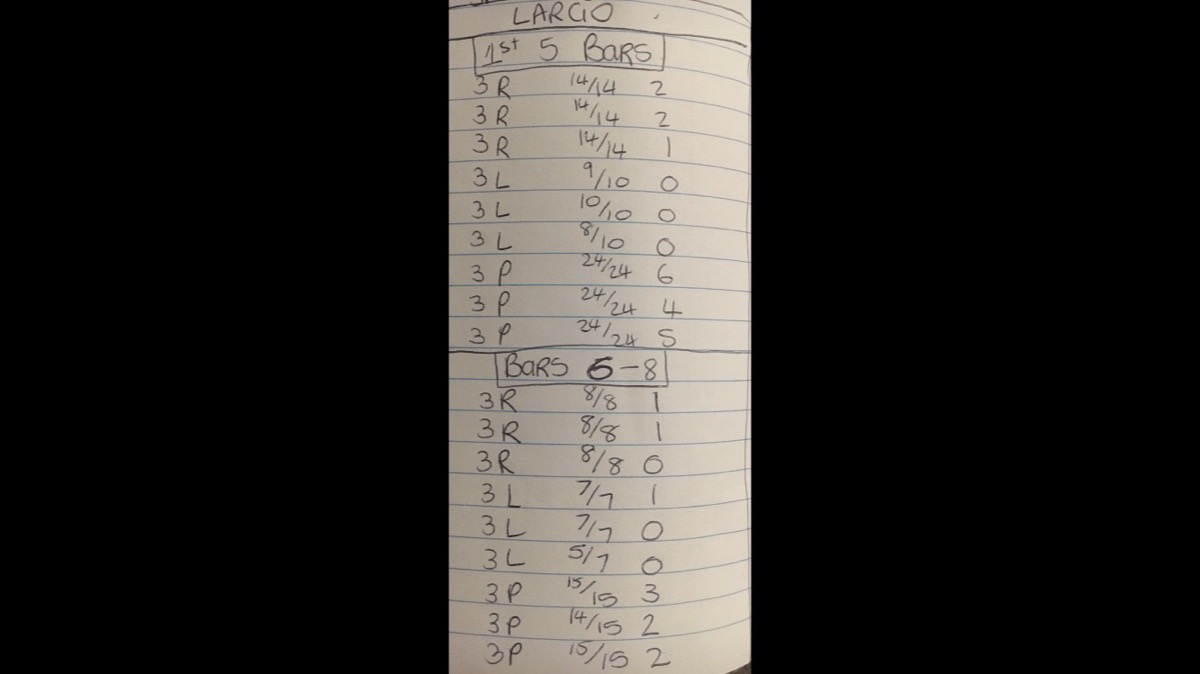 LARGO
1st 5 BARS
3 R 14/14 2
3 R 14/14 2
3 R 14/14 1
3 L 9/10 0
3 L 10/10 0
3 L 8/10 0
3 P 24/24 6
3 P 24/24 4
3 P 24/24 5
BARS 6-8
3R 8/8 1
3R 8/8 1
3R 8/8 0
3 L 7/7 1
3 L 7/7 0
3L 5/7 0
3 P 15/15 3
3P 14/15 2
3P 15/15 2